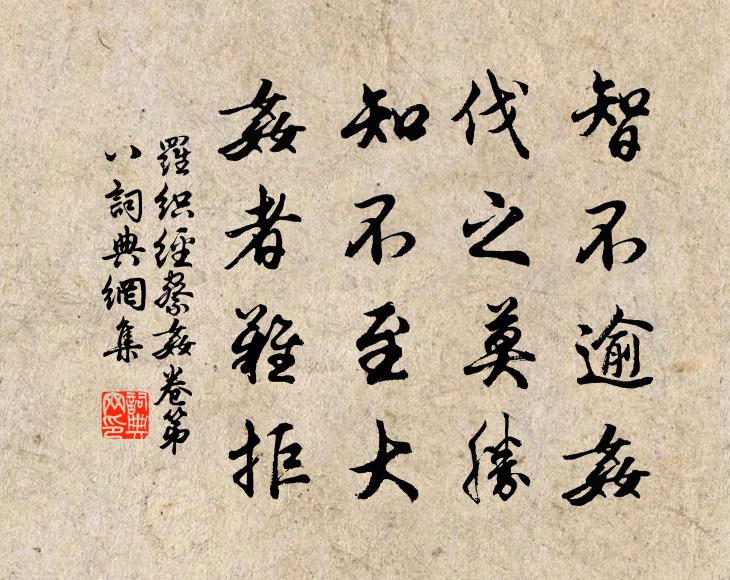 智不逾姦
伐之莫勝
知不至大
姦者難拒
羅织經察姦卷第
八詞典網集
詞典
网印